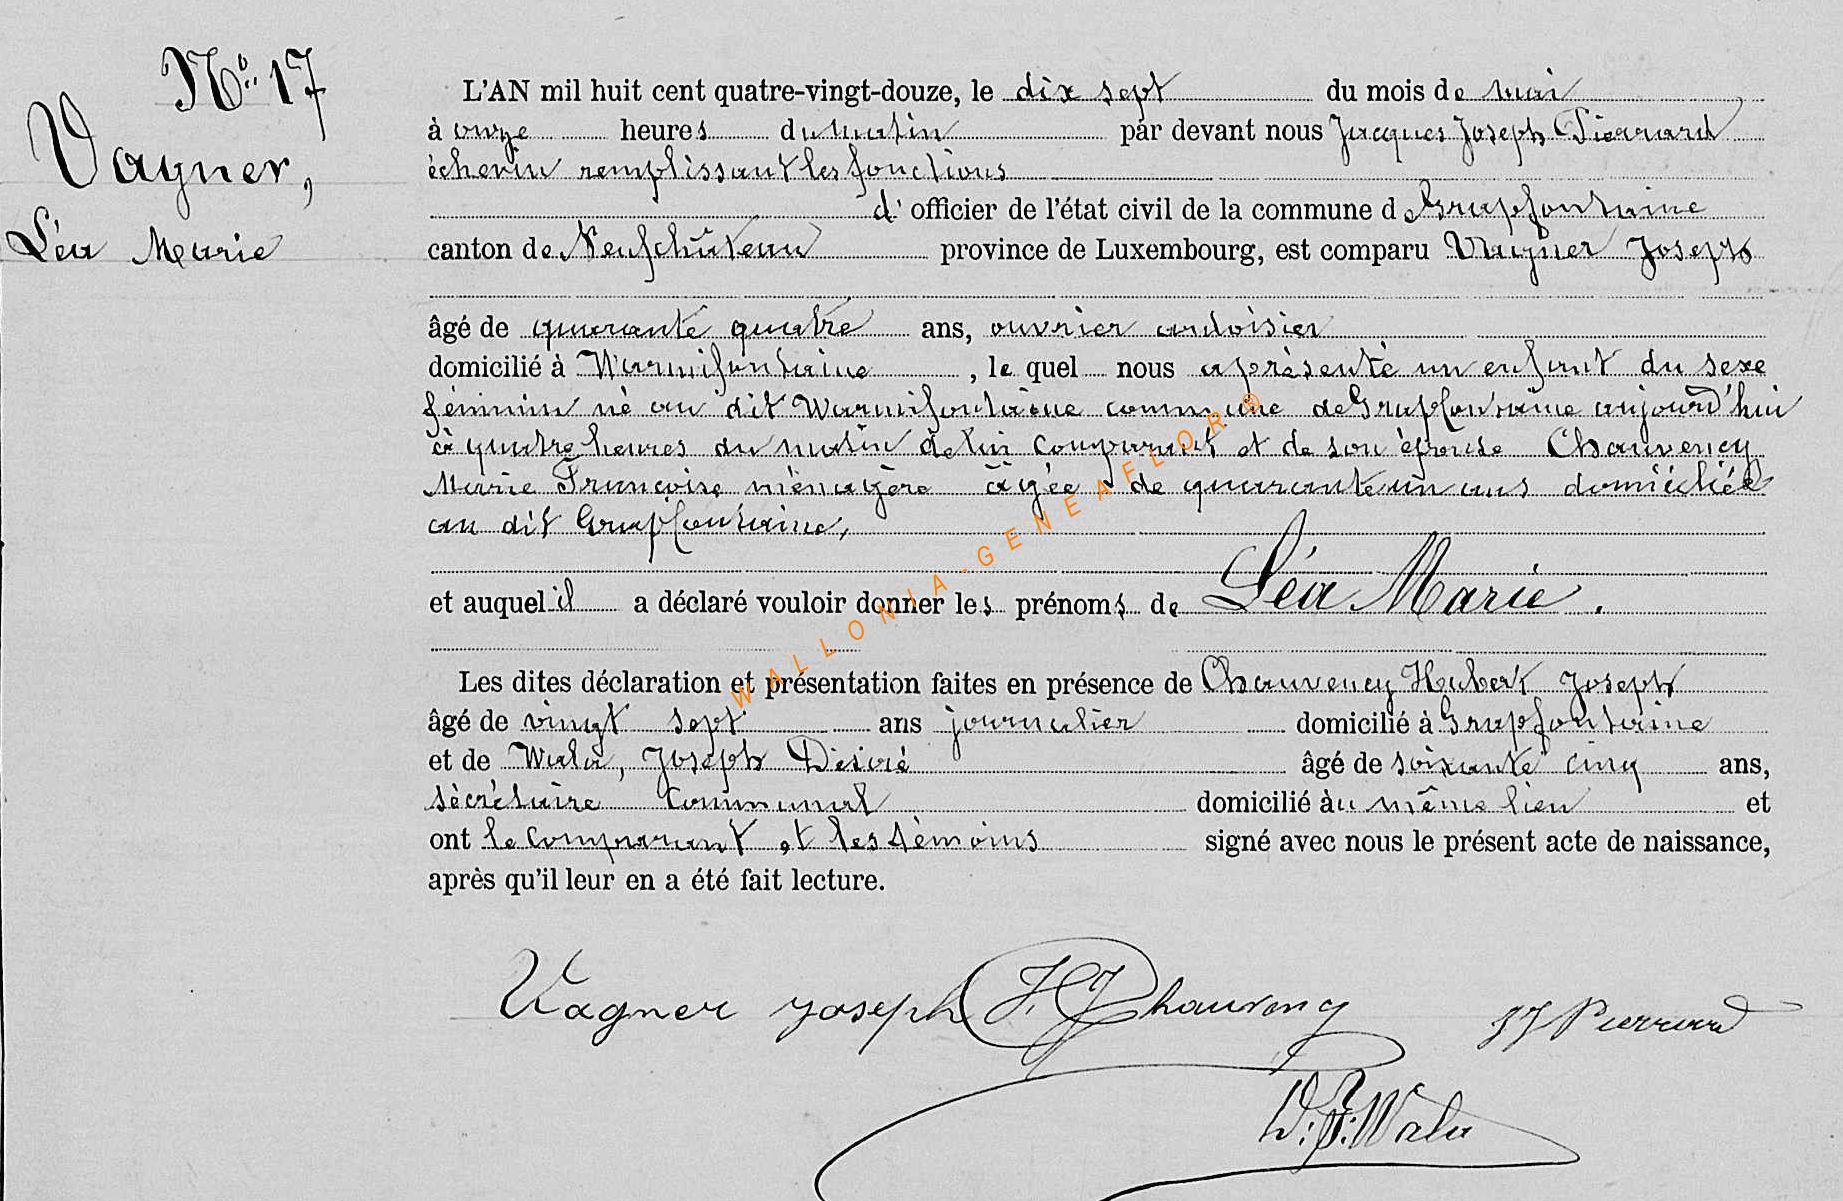 No. 17
Vagner,
Léa Marie
L'AN mil huit cent quatre-vingt-douze, le dix sept du mois de mai
à onze heures du matin par devant nous Jacques Joseph Pierrard
échevin remplissant les fonctions
d' officier de l'état civil de la commune de Grapfontaine
canton de Neufchâteau province de Luxembourg, est comparu Vagner Joseph
âgé de quarante quatre ans, ouvrier ardoisier
domicilié à Warmifontaine, le quel nous a présenté un enfant du sexe
féminin né au dit Warmifontaine commune de Grapfontaine aujourd'hui
à quatre heures du matin de lui comparant et de son épouse Chauvency
Marie Françoise ménagère âgée de quarante un ans domiciliée
au dit Grapfontaine,
et auquel il a déclaré vouloir donner les prénoms de Léa Marie.
Les dites déclaration et présentation faites en présence de Chauvency Hubert Joseph
âgé de vingt sept ans journalier domicilié à Grapfontaine
et de Wala, Joseph Désiré âgé de soixante cinq ans,
sécrétaire communal domicilié au même lieu et
ont le comparant et les témoins signé avec nous le présent acte de naissance,
après qu'il leur en a été fait lecture.
Vagner Joseph H. J Chauvency JJ Pierrard
D. J. Wala
WALLONIA-GENEAFLOR®